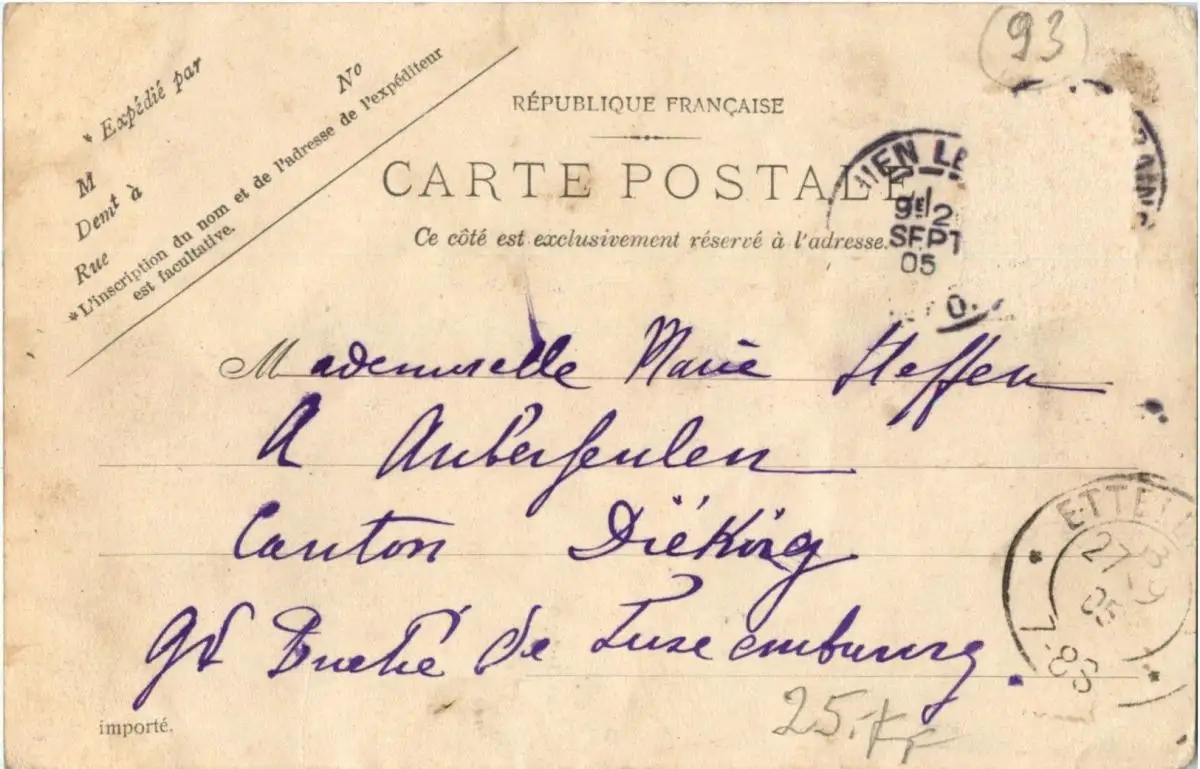 93
* Expédié par
M No
Demt à
Rue
*L'inscription du nom et de l'adresse de l'expéditeur
est facultative.
RÉPUBLIQUE FRANÇAISE
CARTE POSTALE
Ce côté est exclusivement réservé à l'adresse.
HIEN LE
SEPT
05
Mademoiselle Marie Steffen
A
Canton
Gd Duché de Luxembourg.
ETTE
27
05
importé.
25.-